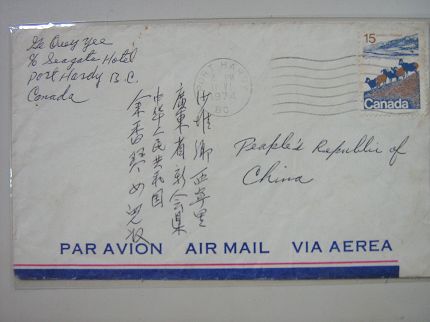 Ga Ouey Yee
% Seagate Hotel
Port Hardy B.C.
Canada
PORT HARDY
PM
1974
15
Canada
沙堆鄉西寧里
廣東省新会縣
中华人民共和国
余香琴女兒收
People's Republic of
China
PAR AVION AIR MAIL VIA AEREA